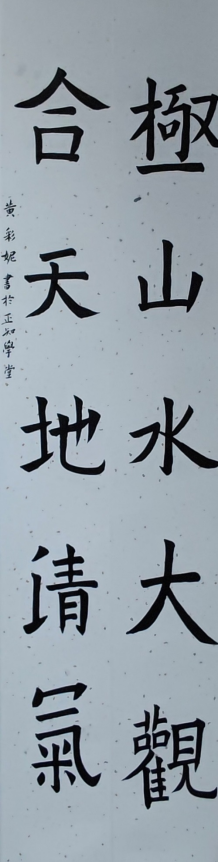 極山水大觀
合天地清氣
黃彩妮書於正知學堂